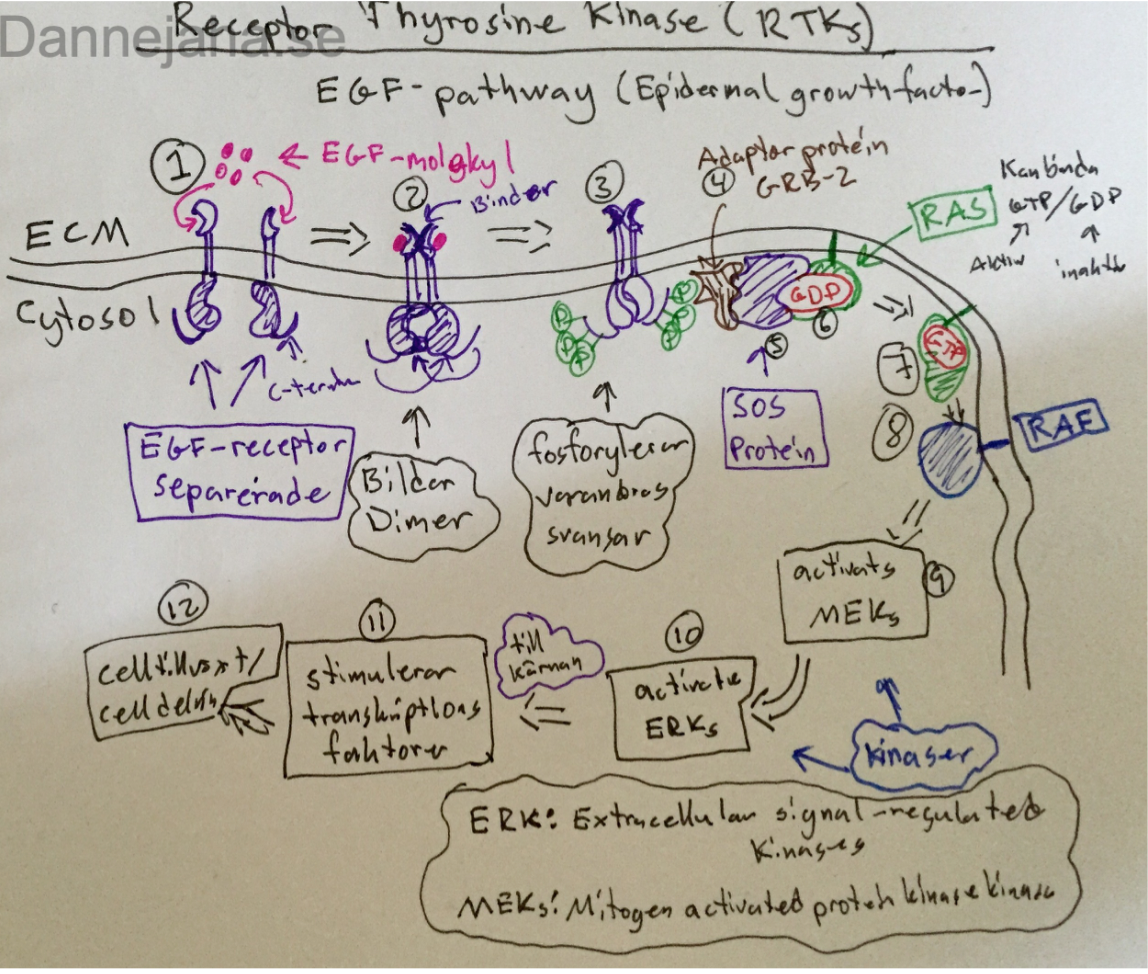 Receptor Thyrosine Kinase (RTKs)
Dannejaha.se
EGF-pathway (Epidermal growthfactor)
1
EGF-molekyl
2
Binder
3
Adaptor protein
4
GRB-2
RAS
Kan binda
GTP/GDP
Aktiv
inaktiv
ECM
Cytosol
C-terminal
P
P
P
P
P
P
GDP
5
6
GTP
7
8
RAF
EGF-receptor
separerade
Bildar
Dimer
fosforylerar
varandras
svansar
SOS
Protein
activats
MEKs
9
10
activate
ERKs
till
kärnan
11
stimulerar
transkriptions
faktorer
12
celltillväxt/
celldelning
kinaser
ERK: Extracellular signal-regulated
kinases
MEKs: Mitogen activated protein kinase kinase